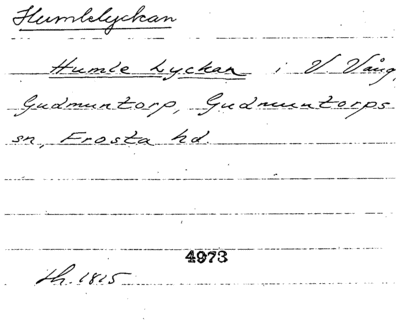 Humlelyckan
Humle Lyckan i V Vång,
Gudmuntorp, Gudmuntorps
sn, Frosta hd.
4973
Lh. 1815